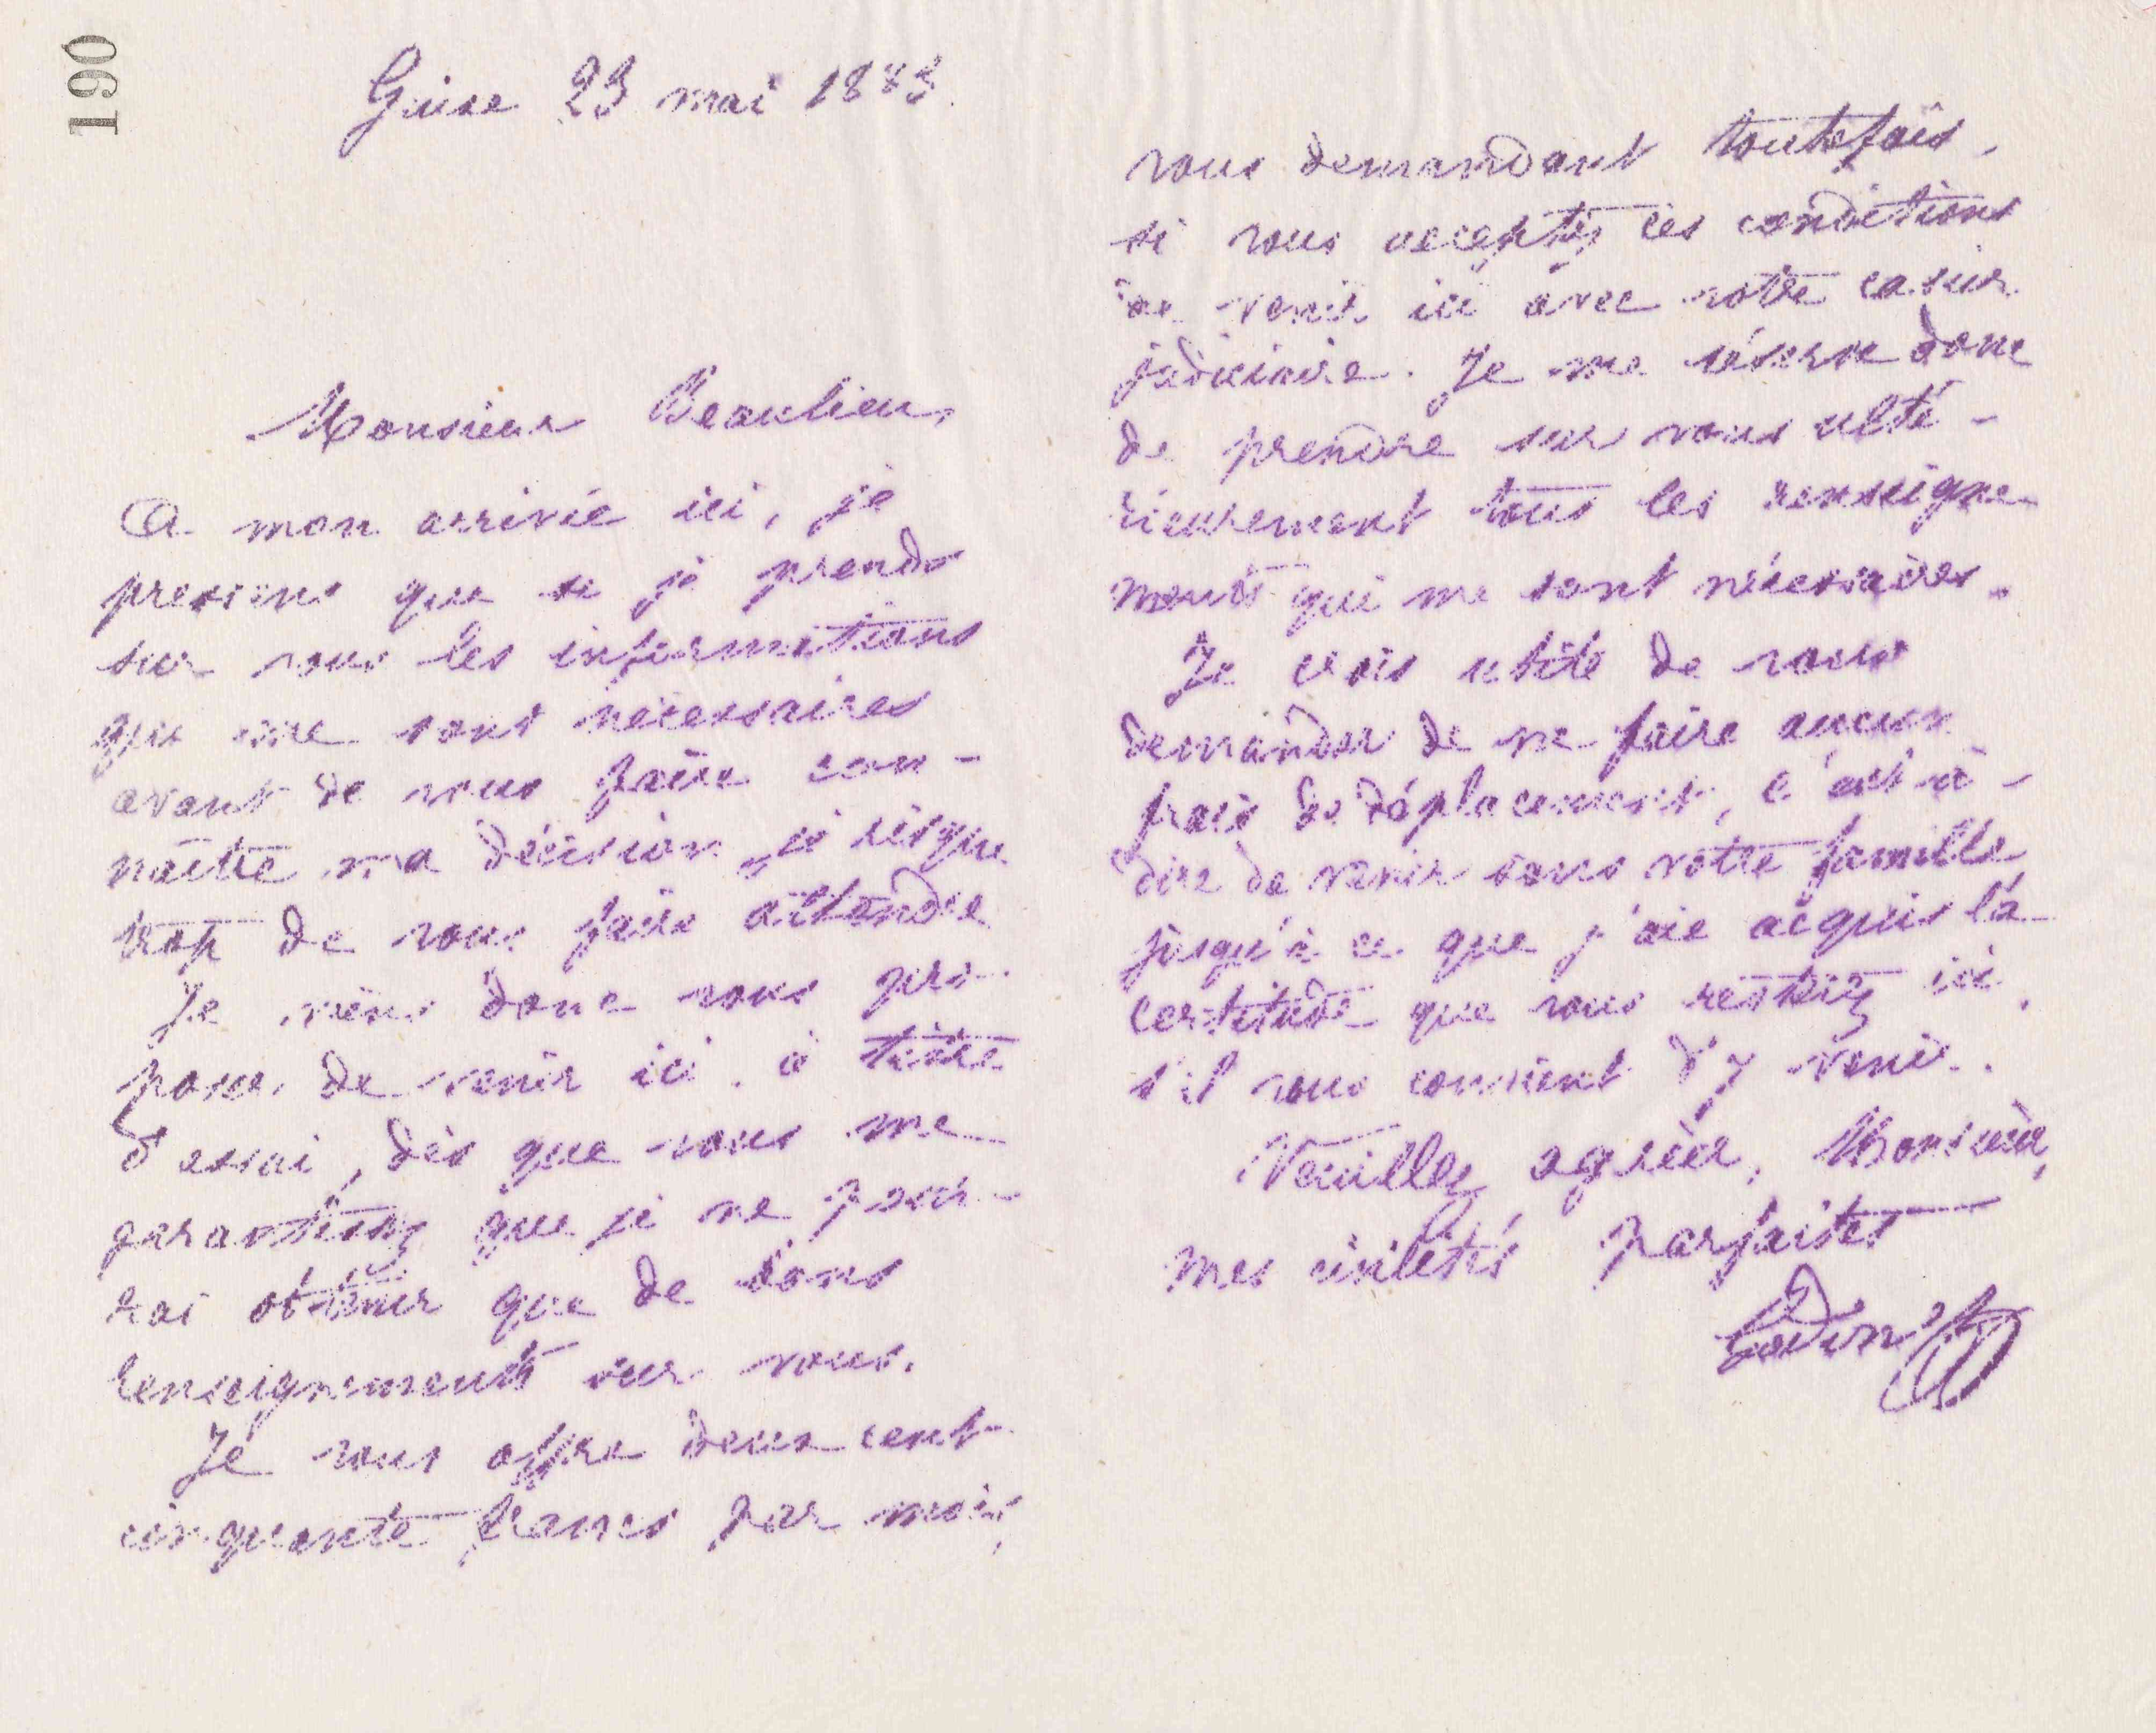 190
Guise 23 mai 1883.
Monsieur Beaulieu,
A mon arrivée ici, je
pressens que si je prends
sur vous les informations
qui me sont nécessaires
avant de vous faire con-
naître ma décision je risque
trop de vous faire attendre
Je viens donc vous pro-
poser de venir ici à titre
d'essai, dès que vous me
garantissez que je ne pour-
rai obtenir que de bons
renseignements sur vous.
Je vous offre deux cent
cinquante francs par mois,
vous demandant toutefois,
si vous acceptez ces conditions
de venir ici avec votre casier
judiciaire. Je me réserve donc
de prendre sur vous ulté-
rieurement tous les renseigne-
ments qui me sont nécessaires.
Je crois utile de vous
demander de ne faire aucun
frais de déplacement, c'est-à-
dire de venir sans votre famille
jusqu'à ce que j'aie acquis la
certitude que vous restiez ici,
s'il vous convient d'y venir.
Veuillez agréer, Monsieur,
mes civilités parfaites
Godin